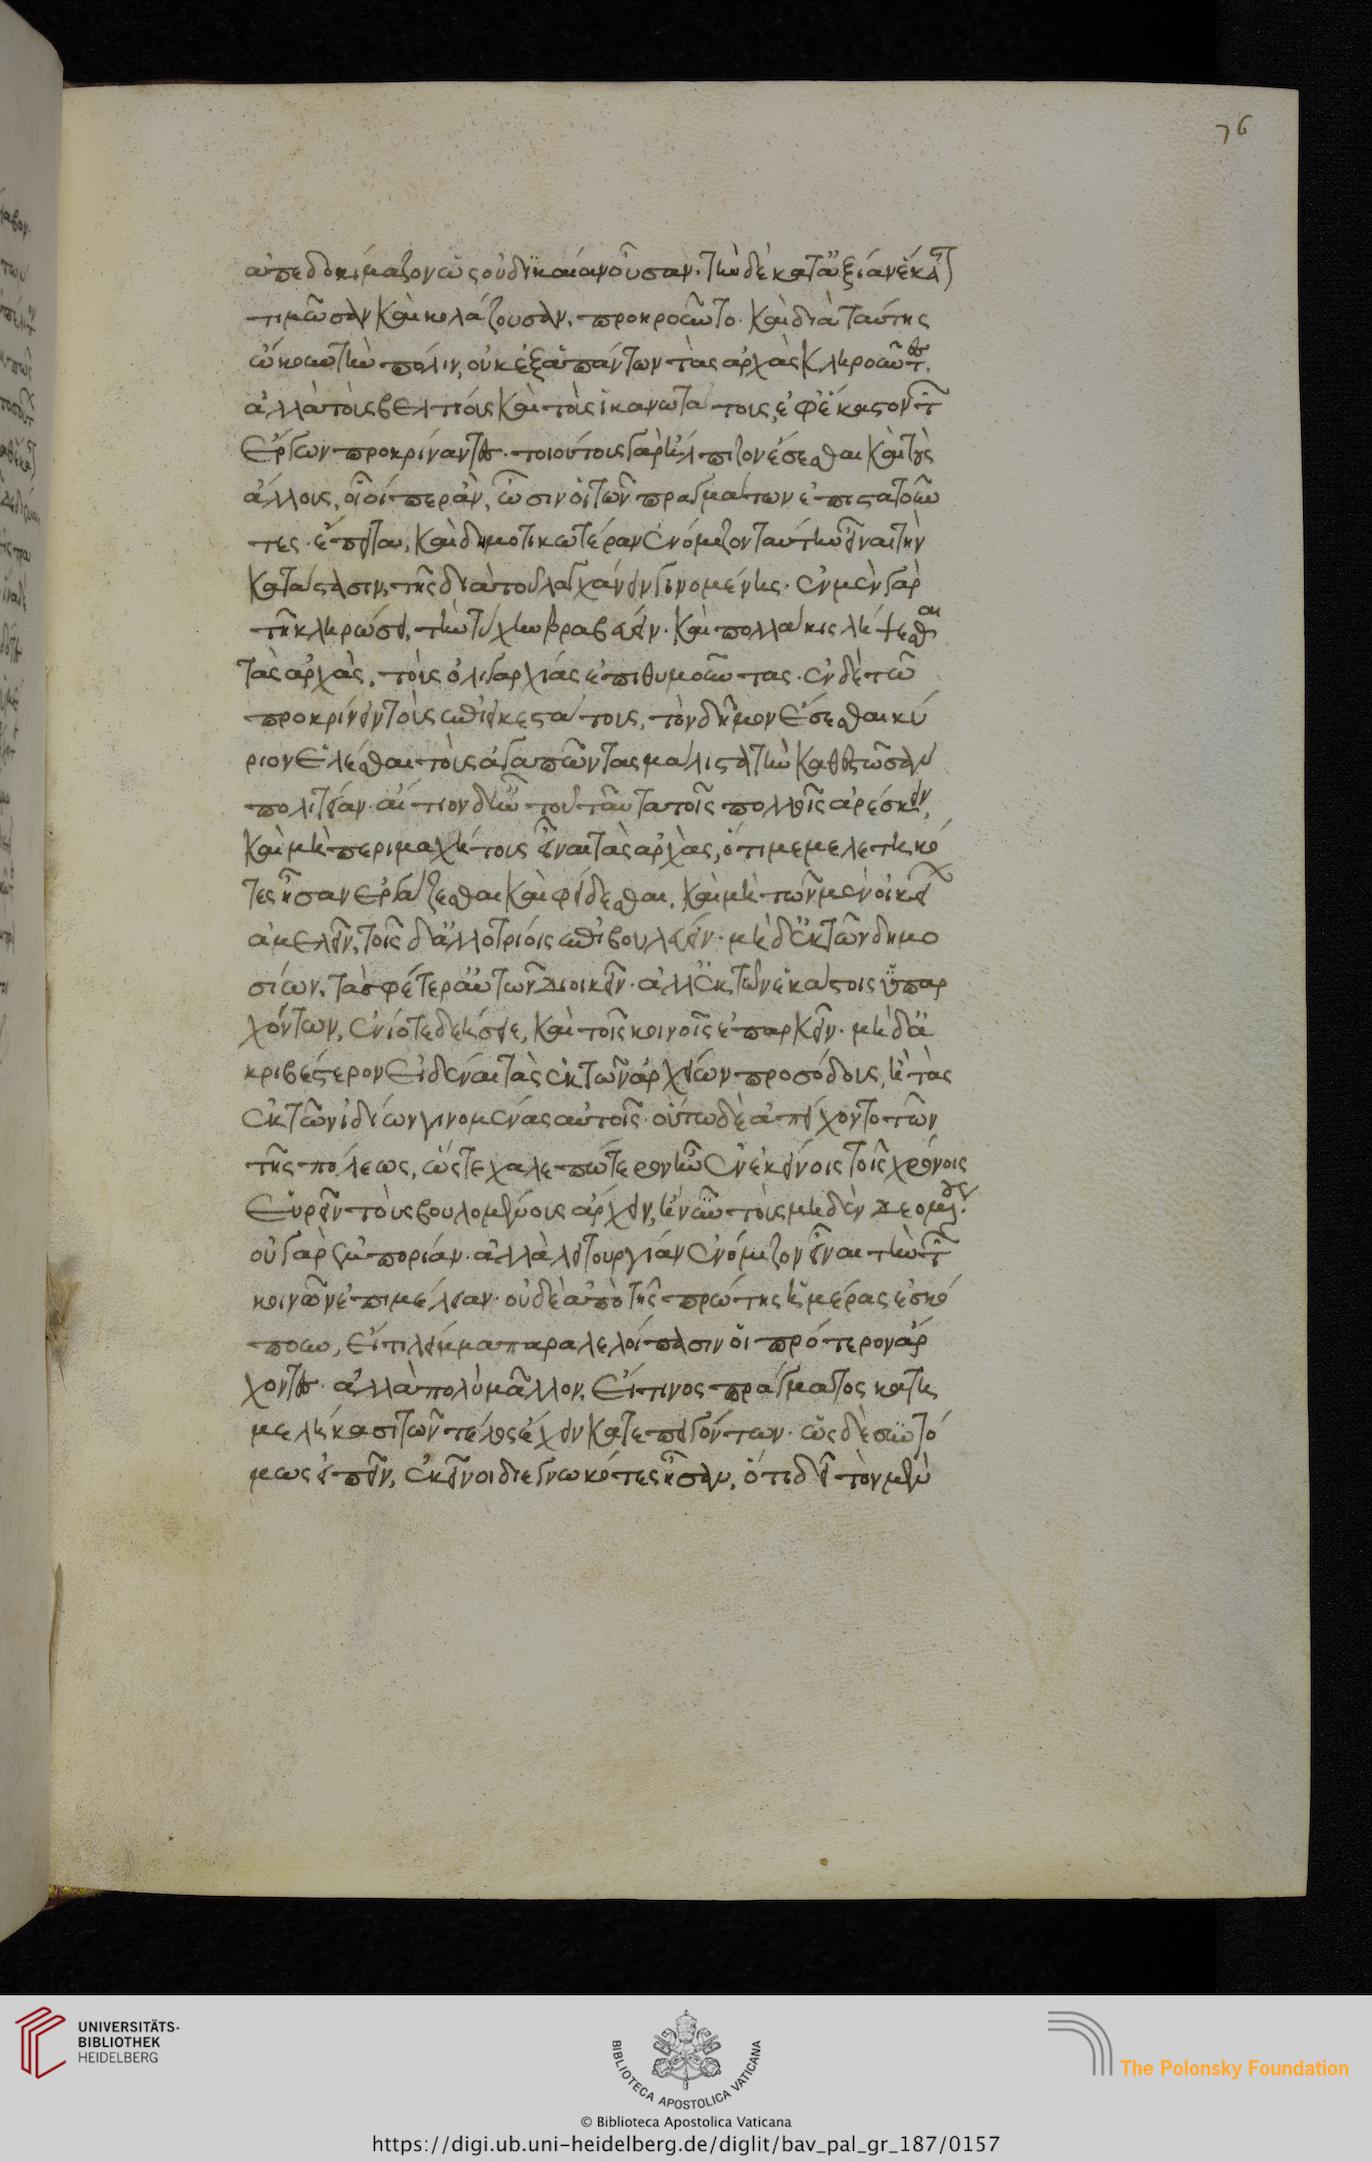 76
ἀπεδοκίμαζον ὡς οὐ δικαίαν οὖσαν. τὴν δὲ κατ' ἀξίαν ἕκαστ(ον)
τιμῶσαν καὶ κολάζουσαν, προηροῦντο. καὶ διὰ ταύτης
ὤκουν τὴν πόλιν, οὐκ ἐξ ἁπάντων τὰς ἀρχὰς κληροῦντες,
ἀλλὰ τοὺς βελτίους καὶ τοὺς ἱκανωτάτους, ἐφ' ἕκαστον τῶν
ἔργων προκρίναντες. τοιούτους γὰρ ἤλπιζον ἔσεσθαι καὶ τοὺς
ἄλλους, οἷοί περ ἂν, ὦσιν οἱ τῶν πραγμάτων ἐπιστατοῦν
τες. ἔπειτα, καὶ δημοτικωτέραν ἐνόμιζον ταύτην εἶναι τὴν
κατάστασιν, τῆς διὰ τοῦ λαγχάνειν γινομένης. ἐν μὲν γὰρ
τῇ κληρώσει, τὴν τύχην βραβεύειν. καὶ πολλάκις λήψεσθαι
τὰς ἀρχὰς, τοὺς ὀλιγαρχίας ἐπιθυμοῦντας. ἐν δὲ τῶ
προκρίνειν τοὺς ἐπιεικεστάτους, τὸν δῆμον ἔσεσθαι κύ
ριον ἑλέσθαι τοὺς ἀγαπῶντας μάλιστα τὴν καθεστῶσαν
πολιτείαν. αἴτιον δ' ἦν τοῦ ταῦτα τοῖς πολλοῖς ἀρέσκειν,
καὶ μὴ περιμαχήτους εἶναι τὰς ἀρχὰς, ὅτι μεμελετηκό
τες ἦσαν ἐργάζεσθαι καὶ φείδεσθαι, καὶ μὴ τῶν μὲν οἰκείων
ἀμελεῖν, τοῖς δ' ἀλλοτρίοις ἐπιβουλεύειν. μηδ' ἐκ τῶν δημο
σίων, τὰ σφέτερ' αὐτῶν διοικεῖν. ἀλλ' ἐκ τῶν ἑκάστοις ὑπαρ
χόντων, ἐνίοτε δεήσειε, καὶ τοῖς κοινοῖς ἐπαρκεῖν. μηδ' ἀ
κριβέστερον εἰδέναι τὰς ἐκ τῶν ἀρχείων προσόδους, ἢ τὰς
ἐκ τῶν ἰδίων γινομένας αὐτοῖς. οὕτω δὲ ἀπείχοντο τῶν
τῆς πόλεως, ὥστε χαλεπώτερον ἦν ἐν ἐκείνοις τοῖς χρόνοις
εὑρεῖν τοὺς βουλομένους ἄρχειν, ἢ νῦν τοὺς μηδὲν δεομένους.
οὐ γὰρ ἐμπορίαν. ἀλλὰ λειτουργίαν ἐνόμιζον εἶναι τὴν τῶν
κοινῶν ἐπιμέλειαν. οὐδὲ ἀπὸ τῆς πρώτης ἡμέρας ἐσκό
πουν, εἴ τι λῆμμα παραλελοίπασιν οἱ πρότερον ἄρ
χοντες. ἀλλὰ πολὺ μᾶλλον, εἴ τινος πράγματος κατη
μελήκασι τῶν τέλος ἔχειν κατεπειγόντων. ὡς δὲ συντό
μως εἰπεῖν, ἐκεῖνοι διεγνωκότες ἦσαν, ὅτι δεῖ τὸν μὲν
UNIVERSITÄTS-
BIBLIOTHEK
HEIDELBERG
BIBLIOTECA APOSTOLICA VATICANA
The Polonsky Foundation
© Biblioteca Apostolica Vaticana
https://digi.ub.uni-heidelberg.de/diglit/bav_pal_gr_187/0157